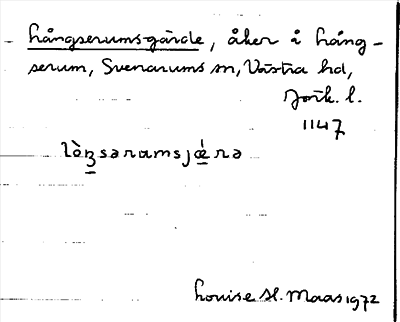 Långserums-gärde, åker i Lång-
serum, Svenarums sn, Västra hd,
Jönk. l.
1147
Louise H. Maas 1972